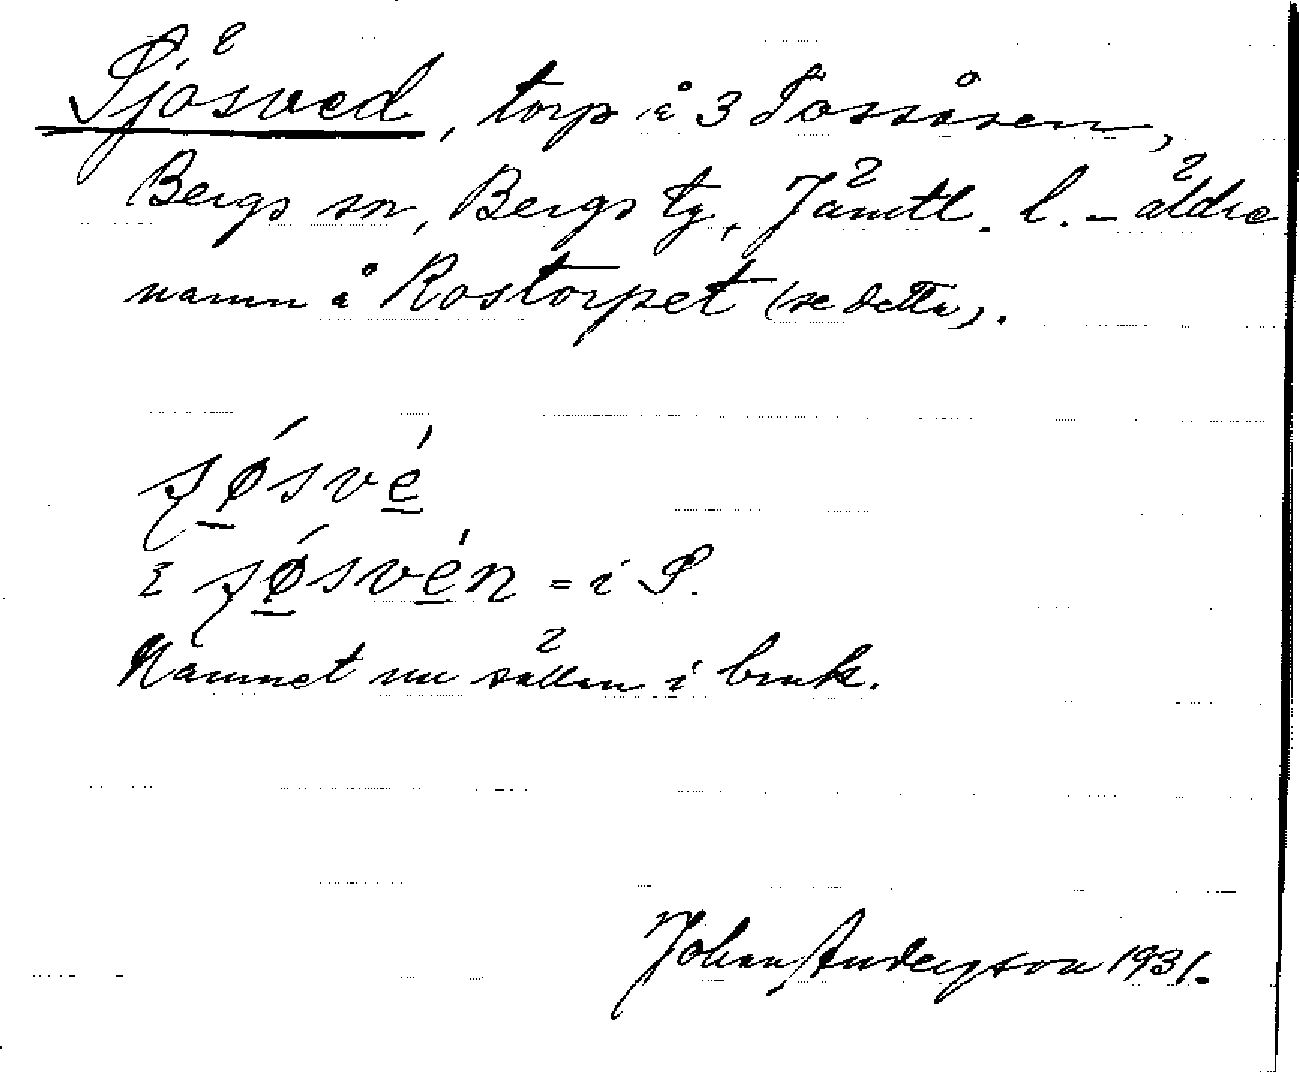 Sjösved, torp å 3 Tossåsen,
Bergs sn, Bergs tg, Jämtl. l. – äldre
namn å Rostorpet (se detta).
sǿ̱své̱
sǿ̱své̱n = i S.
Namnet nu sällan i bruk.
Johan Anderzson 1931.